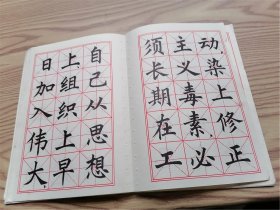 动，染上修正
主义毒素必
须长期在工
自己从思想
上，组织上早
日加入伟大，